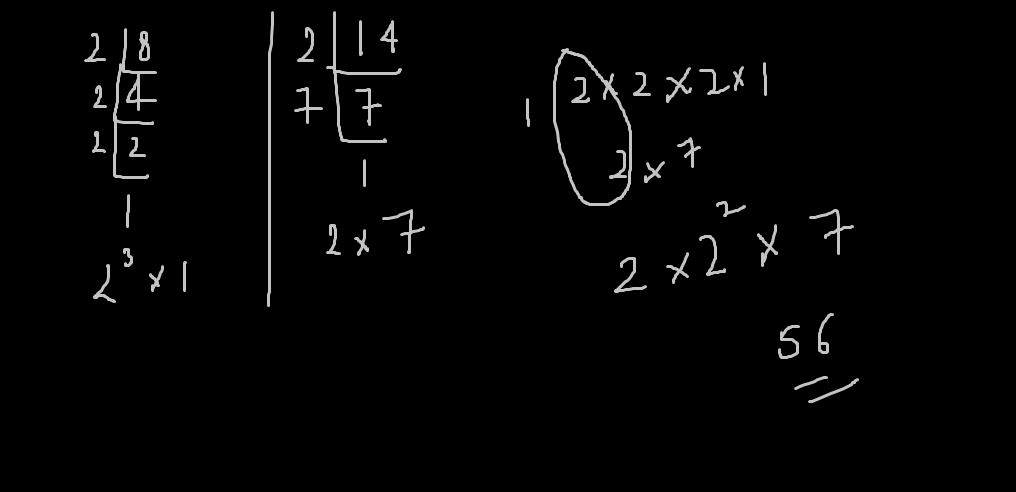 2 | 8
2 | 4
2 | 2
1
2³ × 1
2 | 14
7 | 7
1
2 × 7
1
2 × 2 × 2 × 1
2 × 7
2 × 2² × 7
56